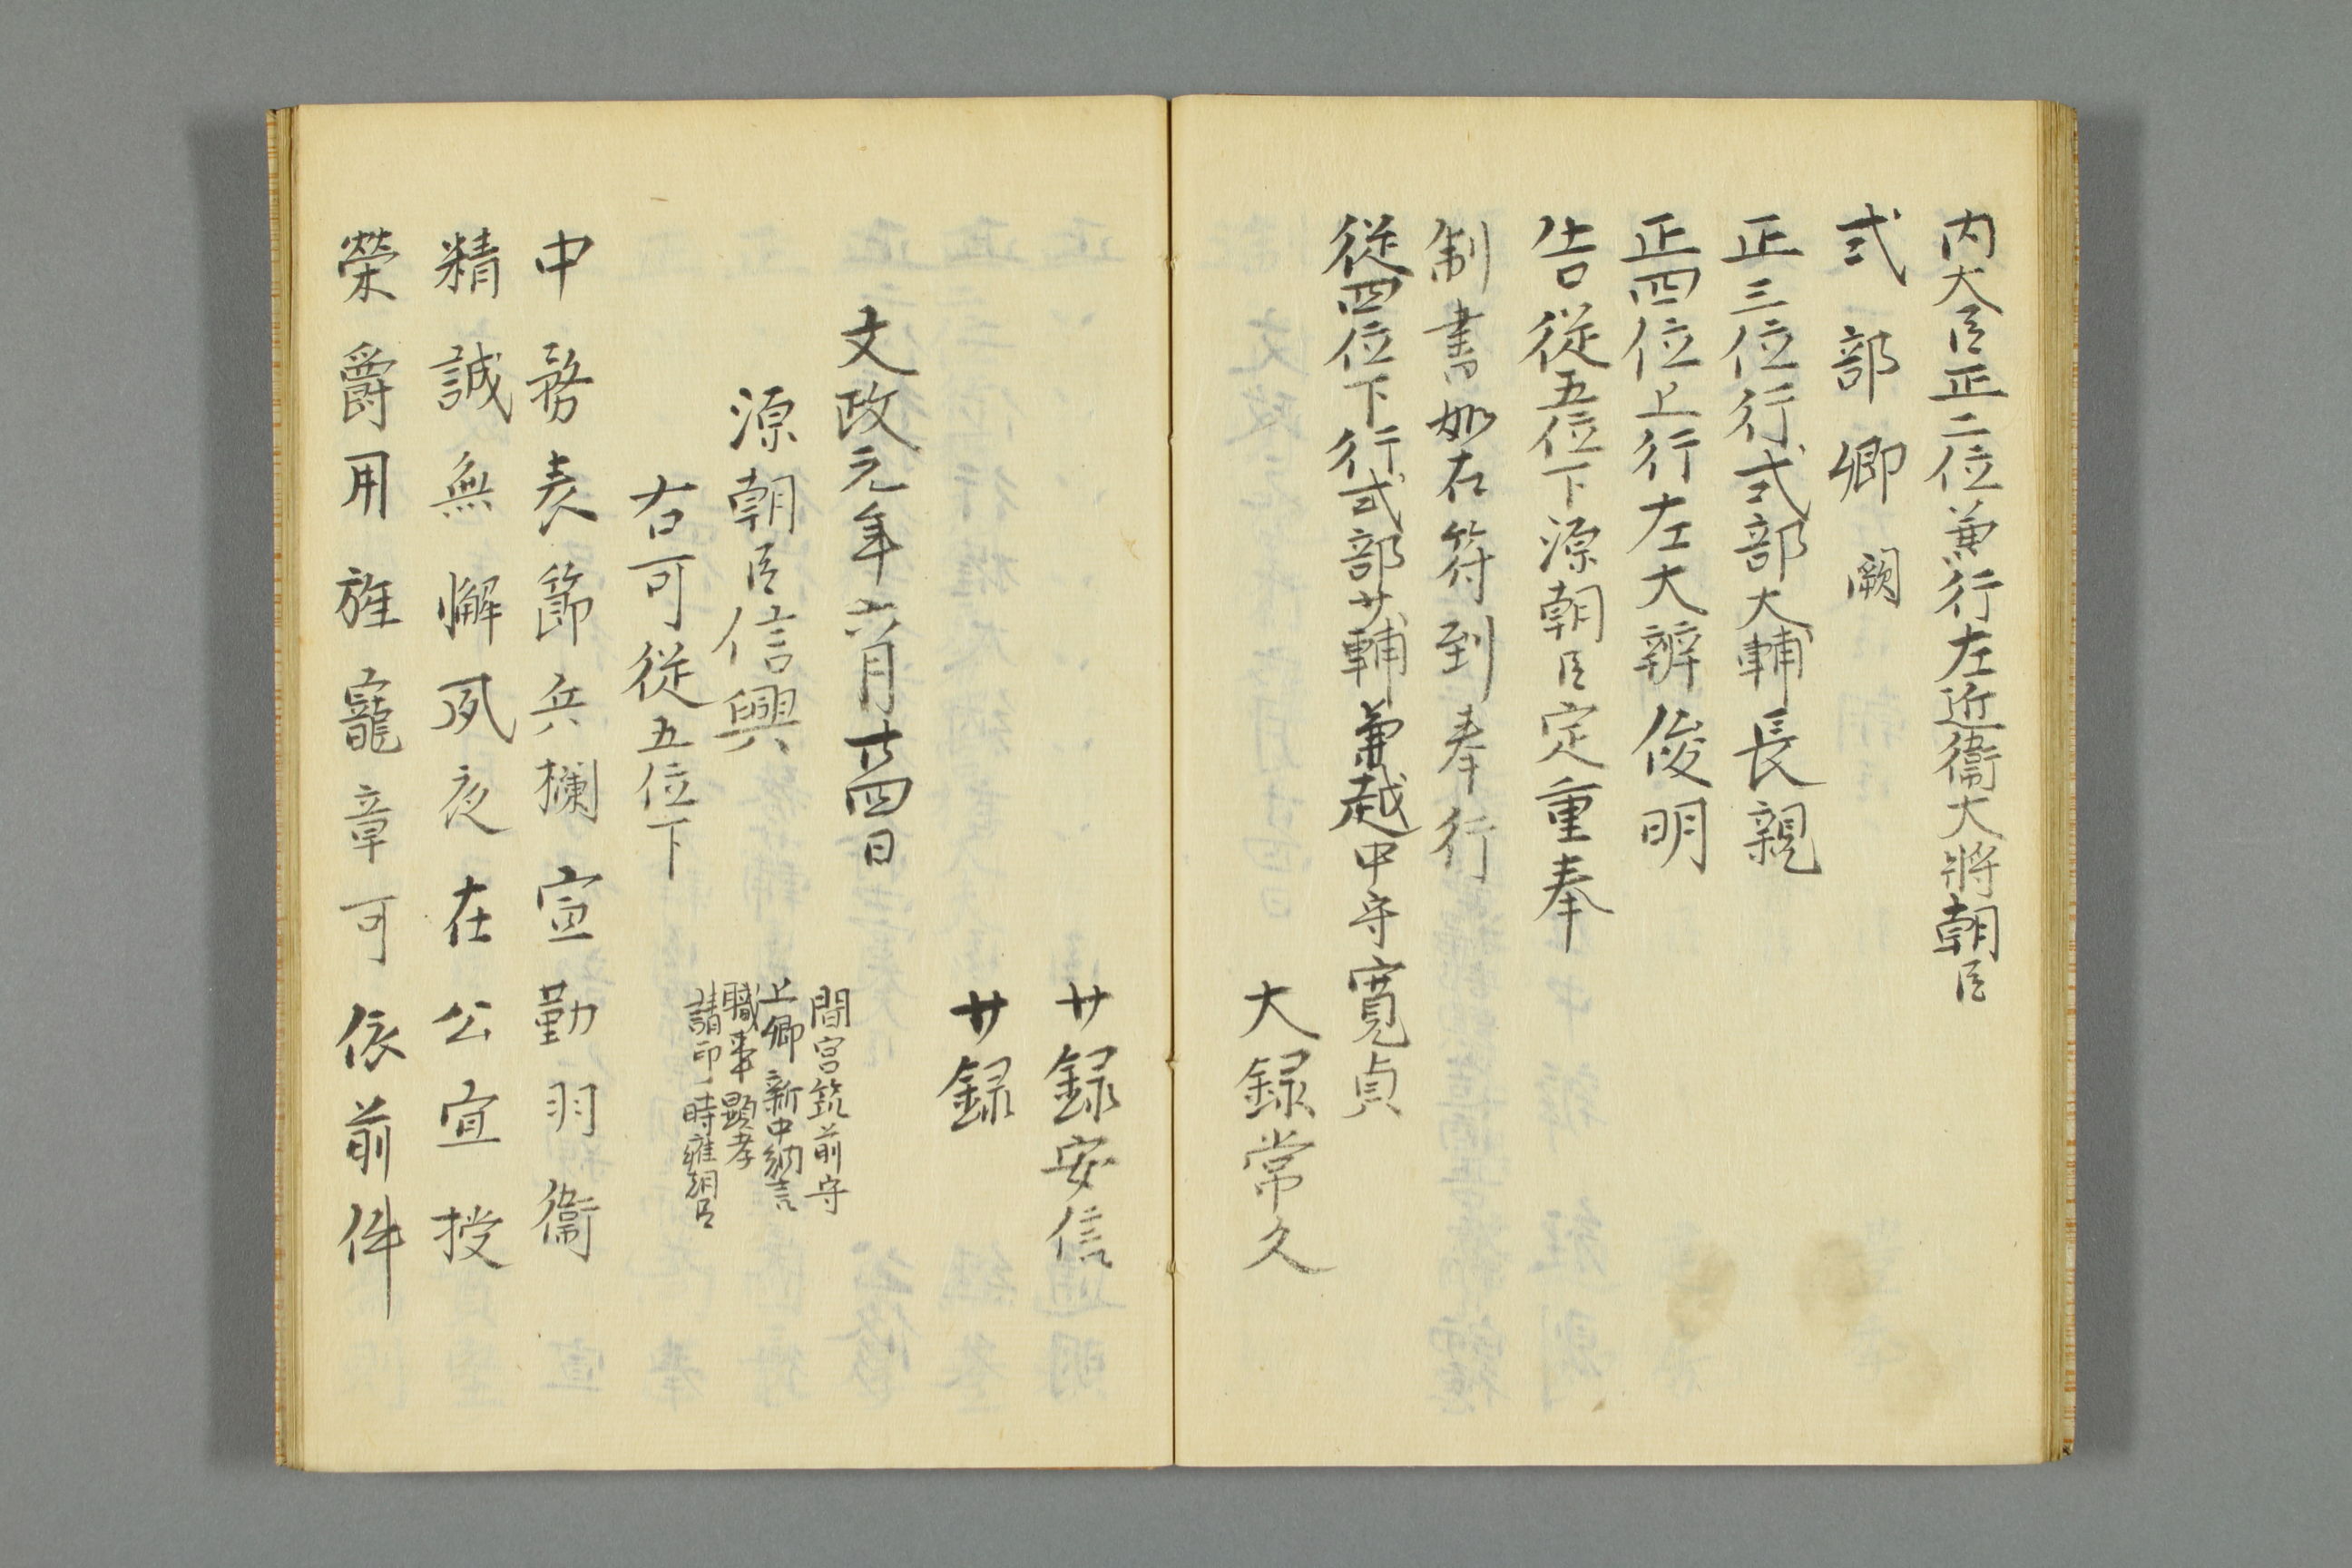 内大臣正二位兼行左近衞大將朝臣
式部卿闕
正三位行式部大輔長親
正四位上行左大辨俊明
告從五位下源朝臣定重奉
制書如右符到奉行
從四位下行式部少輔兼越中守寛貞
大録常久
少録安信
少録
文政元年六月廿四日
間宮筑前守
上卿新中納言
職事顕孝
請印時雍朝臣
源朝臣信興
右可從五位下
中務表節兵欄宣勤羽衞
精誠無懈夙夜在公宜授
榮爵用旌寵章可依前件